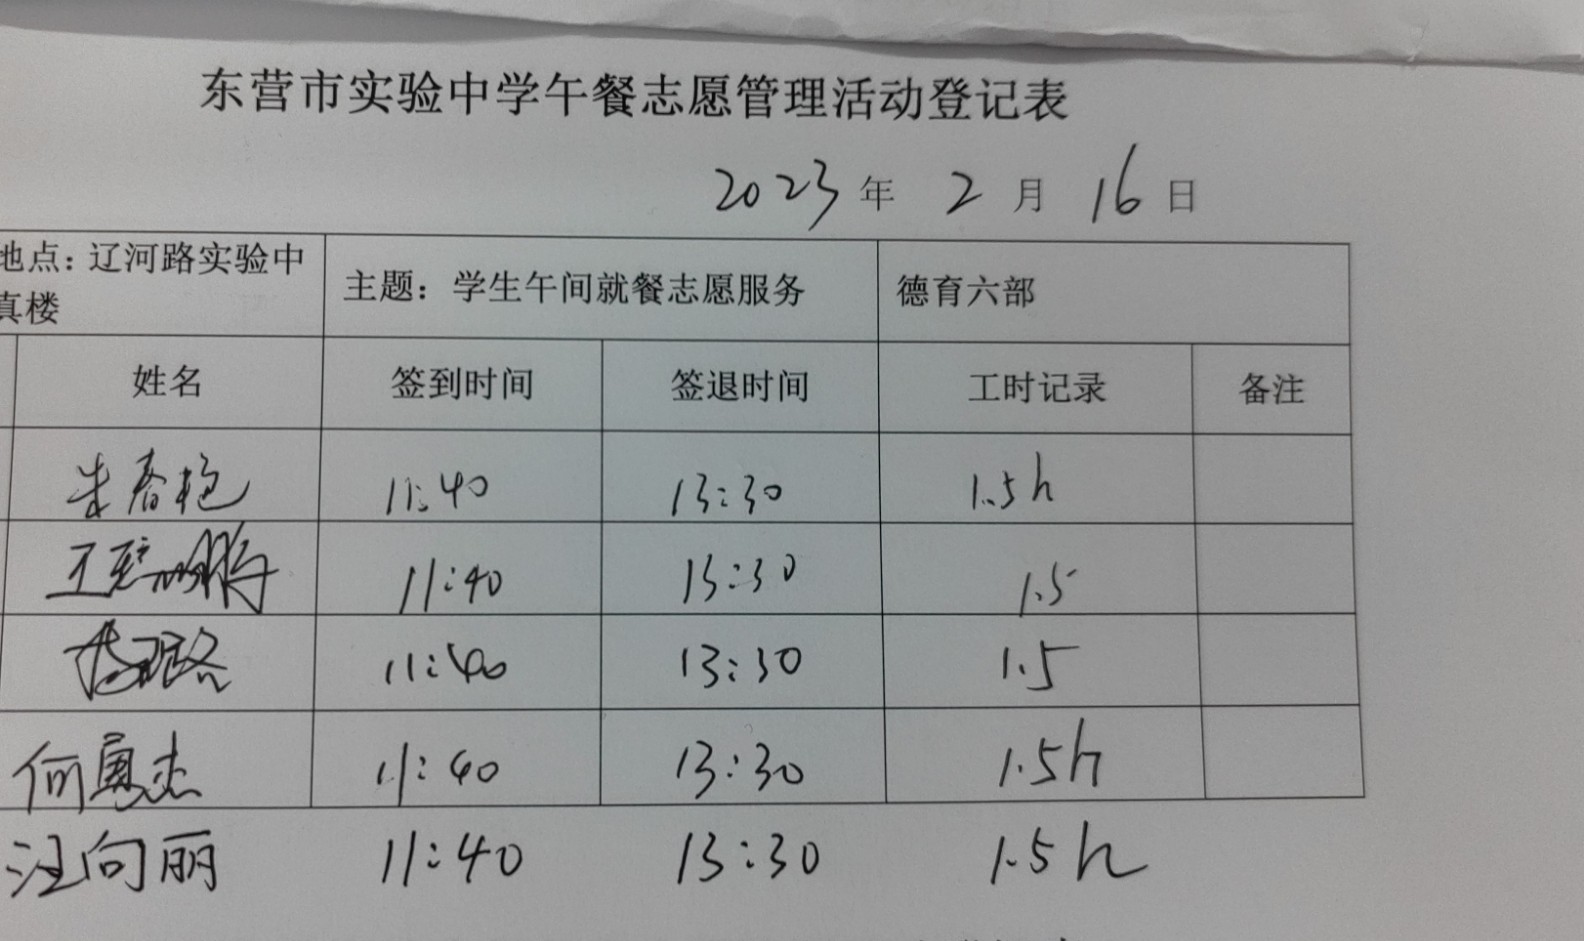 东营市实验中学午餐志愿管理活动登记表
2023年 2月 16日
地点：辽河路实验中 主题：学生午间就餐志愿服务 德育六部
真楼
姓名 签到时间 签退时间 工时记录 备注
朱春艳 11:40 13:30 1.5h
王 11:40 13:30 1.5
路 11:40 13:30 1.5
何 杰 11:40 13:30 1.5h
汪向丽 11:40 13:30 1.5h